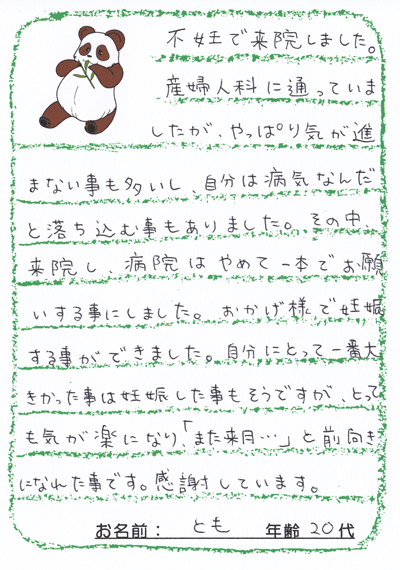 不妊で来院しました。
産婦人科に通っていま
したが、やっぱり気が進
まない事も多いし、自分は病気なんだ
と落ち込む事もありました。その中、
来院し、病院はやめて一本でお願
いする事にしました。おかげ様で妊娠
する事ができました。自分にとって一番大
きかった事は妊娠した事もそうですが、とって
も気が楽になり、「また来月…」と前向き
になれた事です。感謝しています。
お名前： とも 年齢 20代